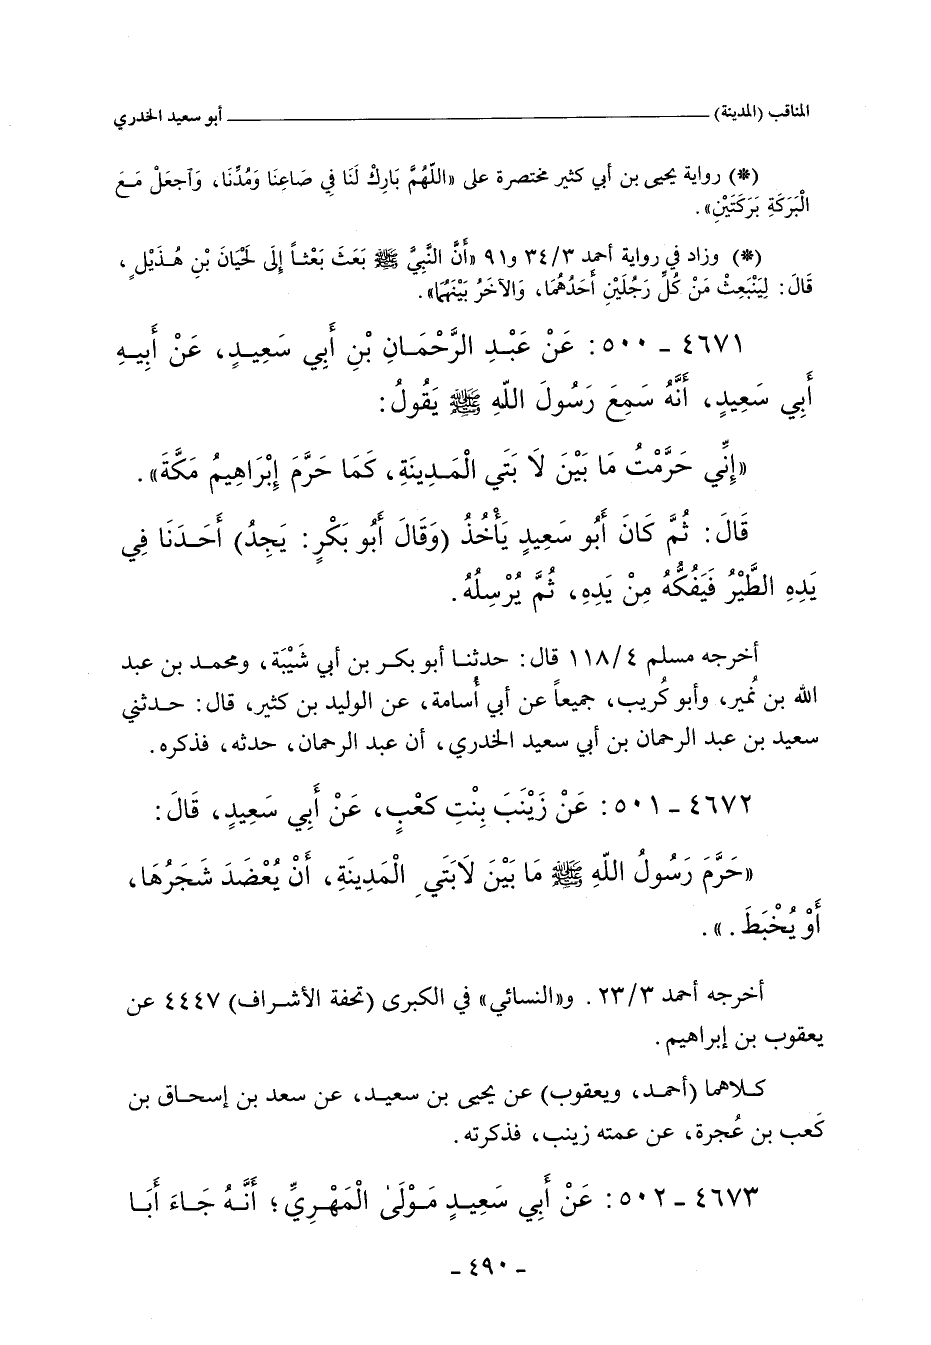 المناقب (المدينة) ـــــــــــــــــ أبو سعيد الخدري
(*) رواية يحيى بن أبي كثير مختصرة على «اللّٰهُمَّ بَارِكْ لَنَا فِي صَاعِنَا وَمُدِّنَا، وَآجعَلْ مَعَ
الْبَرَكَةِ بَرَكَتَيْنِ».
(*) وزاد في رواية أحمد ٣٤/٣ و٩١ «أَنَّ النَّبِيَّ ﷺ بَعَثَ بَعْثاً إِلَى لَحْيَانَ بْنِ هُذَيْلٍ،
قَالَ: لِيَنْبَعِثْ مَنْ كُلِّ رَجُلَيْنِ أَحَدُهُمَا، وَالآخَرُ بَيْنَهُمَا».
٤٦٧١ ـ ٥٠٠: عَنْ عَبْدِ الرَّحْمَانِ بْنِ أَبِي سَعِيدٍ، عَنْ أَبِيهِ
أَبِي سَعِيدٍ، أَنَّهُ سَمِعَ رَسُولَ اللّهِ ﷺ يَقُولُ:
«إِنِّي حَرَّمْتُ مَا بَيْنَ لَا بَتَيِ الْمَدِينَةِ، كَمَا حَرَّمَ إِبْرَاهِيمُ مَكَّةَ».
قَالَ: ثُمَّ كَانَ أَبُو سَعِيدٍ يَأْخُذُ (وَقَالَ أَبُو بَكْرٍ: يَجِدُ) أَحَدَنَا فِي
يَدِهِ الطَّيْرُ فَيَفُكُّهُ مِنْ يَدِهِ، ثُمَّ يُرْسِلُهُ.
أخرجه مسلم ١١٨/٤ قال: حدثنا أبو بكر بن أبي شَيْبَة، ومحمد بن عبد
الله بن نُمير، وأبو كُريب، جميعاً عن أبي أُسامة، عن الوليد بن كثير، قال: حدثني
سعيد بن عبد الرحمان بن أبي سعيد الخدري، أن عبد الرحمان، حدثه، فذكره.
٤٦٧٢ ـ ٥٠١: عَنْ زَيْنَبَ بِنْتِ كَعْبٍ، عَنْ أَبِي سَعِيدٍ، قَالَ:
«حَرَّمَ رَسُولُ اللّهِ ﷺ مَا بَيْنَ لَابَتَيِ الْمَدِينَةِ، أَنْ يُعْضَدَ شَجَرُهَا،
أَوْ يُخْبَطَ.».
أخرجه أحمد ٢٣/٣. و«النسائي» في الكبرى (تحفة الأشراف) ٤٤٤٧ عن
يعقوب بن إبراهيم.
كلاهما (أحمد، ويعقوب) عن يحيى بن سعيد، عن سعد بن إسحاق بن
كَعب بن عُجرة، عن عمته زينب، فذكرته.
٤٦٧٣ ـ ٥٠٢: عَنْ أَبِي سَعِيدٍ مَوْلَىٰ الْمَهْرِيِّ؛ أَنَّهُ جَاءَ أَبَا
ـ ٤٩٠ ـ